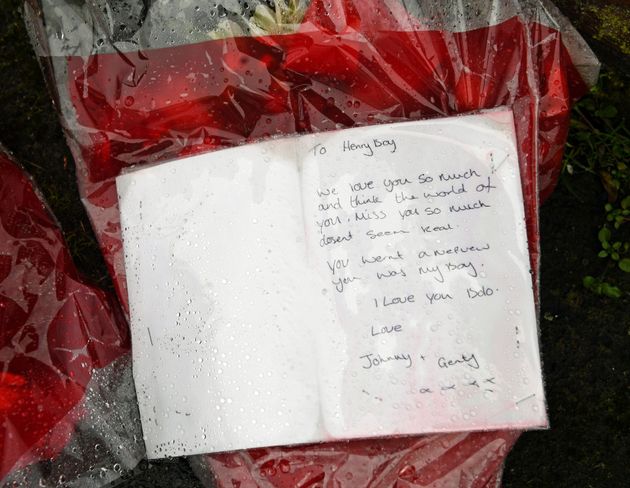 To Henry Boy
we love you so much
and think the world of
you, Miss you so much
dosent seem real.
You wernt a nephew
you was my Boy.
I Love you Dolo.
Love
Johnny + Genty
x x x x